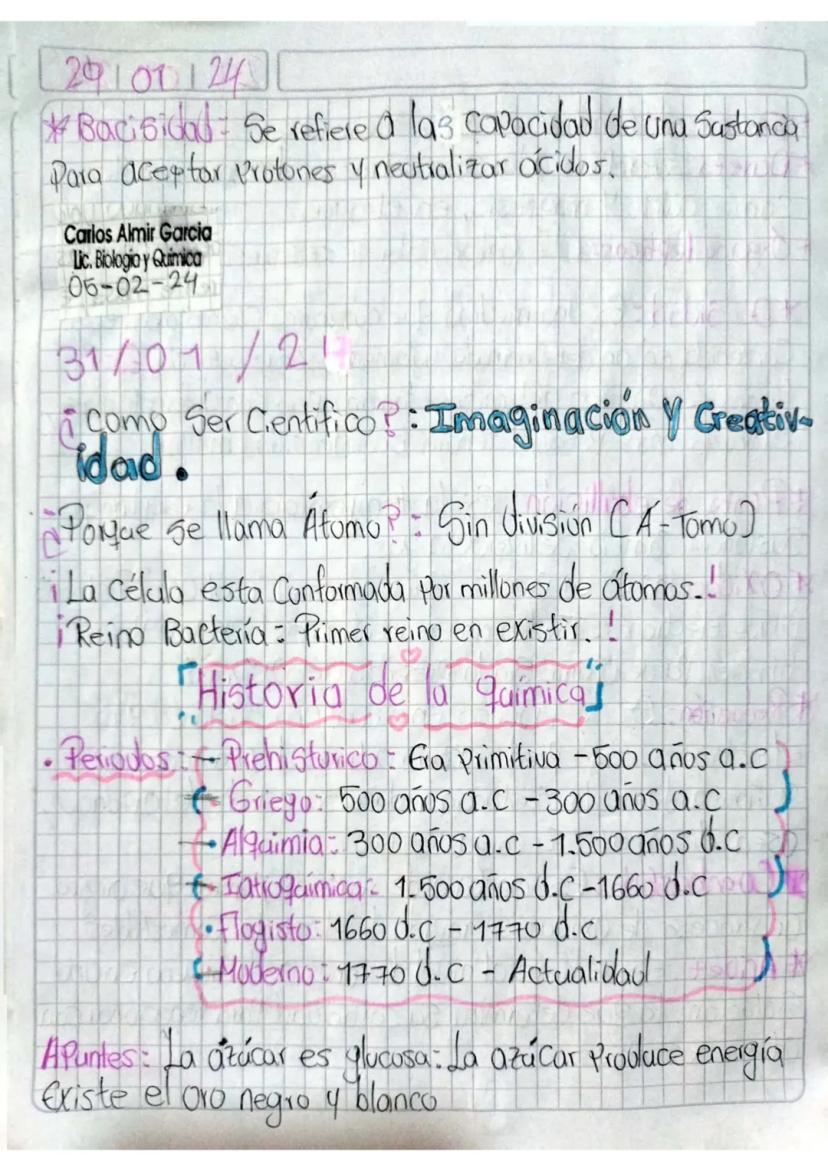 29 | 01 | 24
* Bacisidad: Se refiere a las capacidad de una Sustancia
Para aceptar Protones y neutralizar ácidos.
Carlos Almir Garcia
Lic. Biología y Química
05-02-24
31/01/2
¿Como Ser Cientifico?: Imaginación y Creativ-
idad.
¿Porque se llama Átomo?: Sin división (Á-Tomo)
¡La célula esta Conformada por millones de átomos.!
¡Reino Bactería: Primer reino en existir.!
"Historia de la química"
• Periodos: - Prehisturico: Era Primitiva - 500 años a.c
- Griego: 500 años a.c - 300 años a.c
• Alquimia: 300 años a.c - 1.500 años d.c
- Iatroquímica: 1.500 años d.c - 1660 d.c
• Flogisto: 1660 d.c - 1770 d.c
- Moderno: 1770 d.c - Actualidad
Apuntes: La azúcar es glucosa: La azúcar Produce energía
Existe el oro negro y blanco